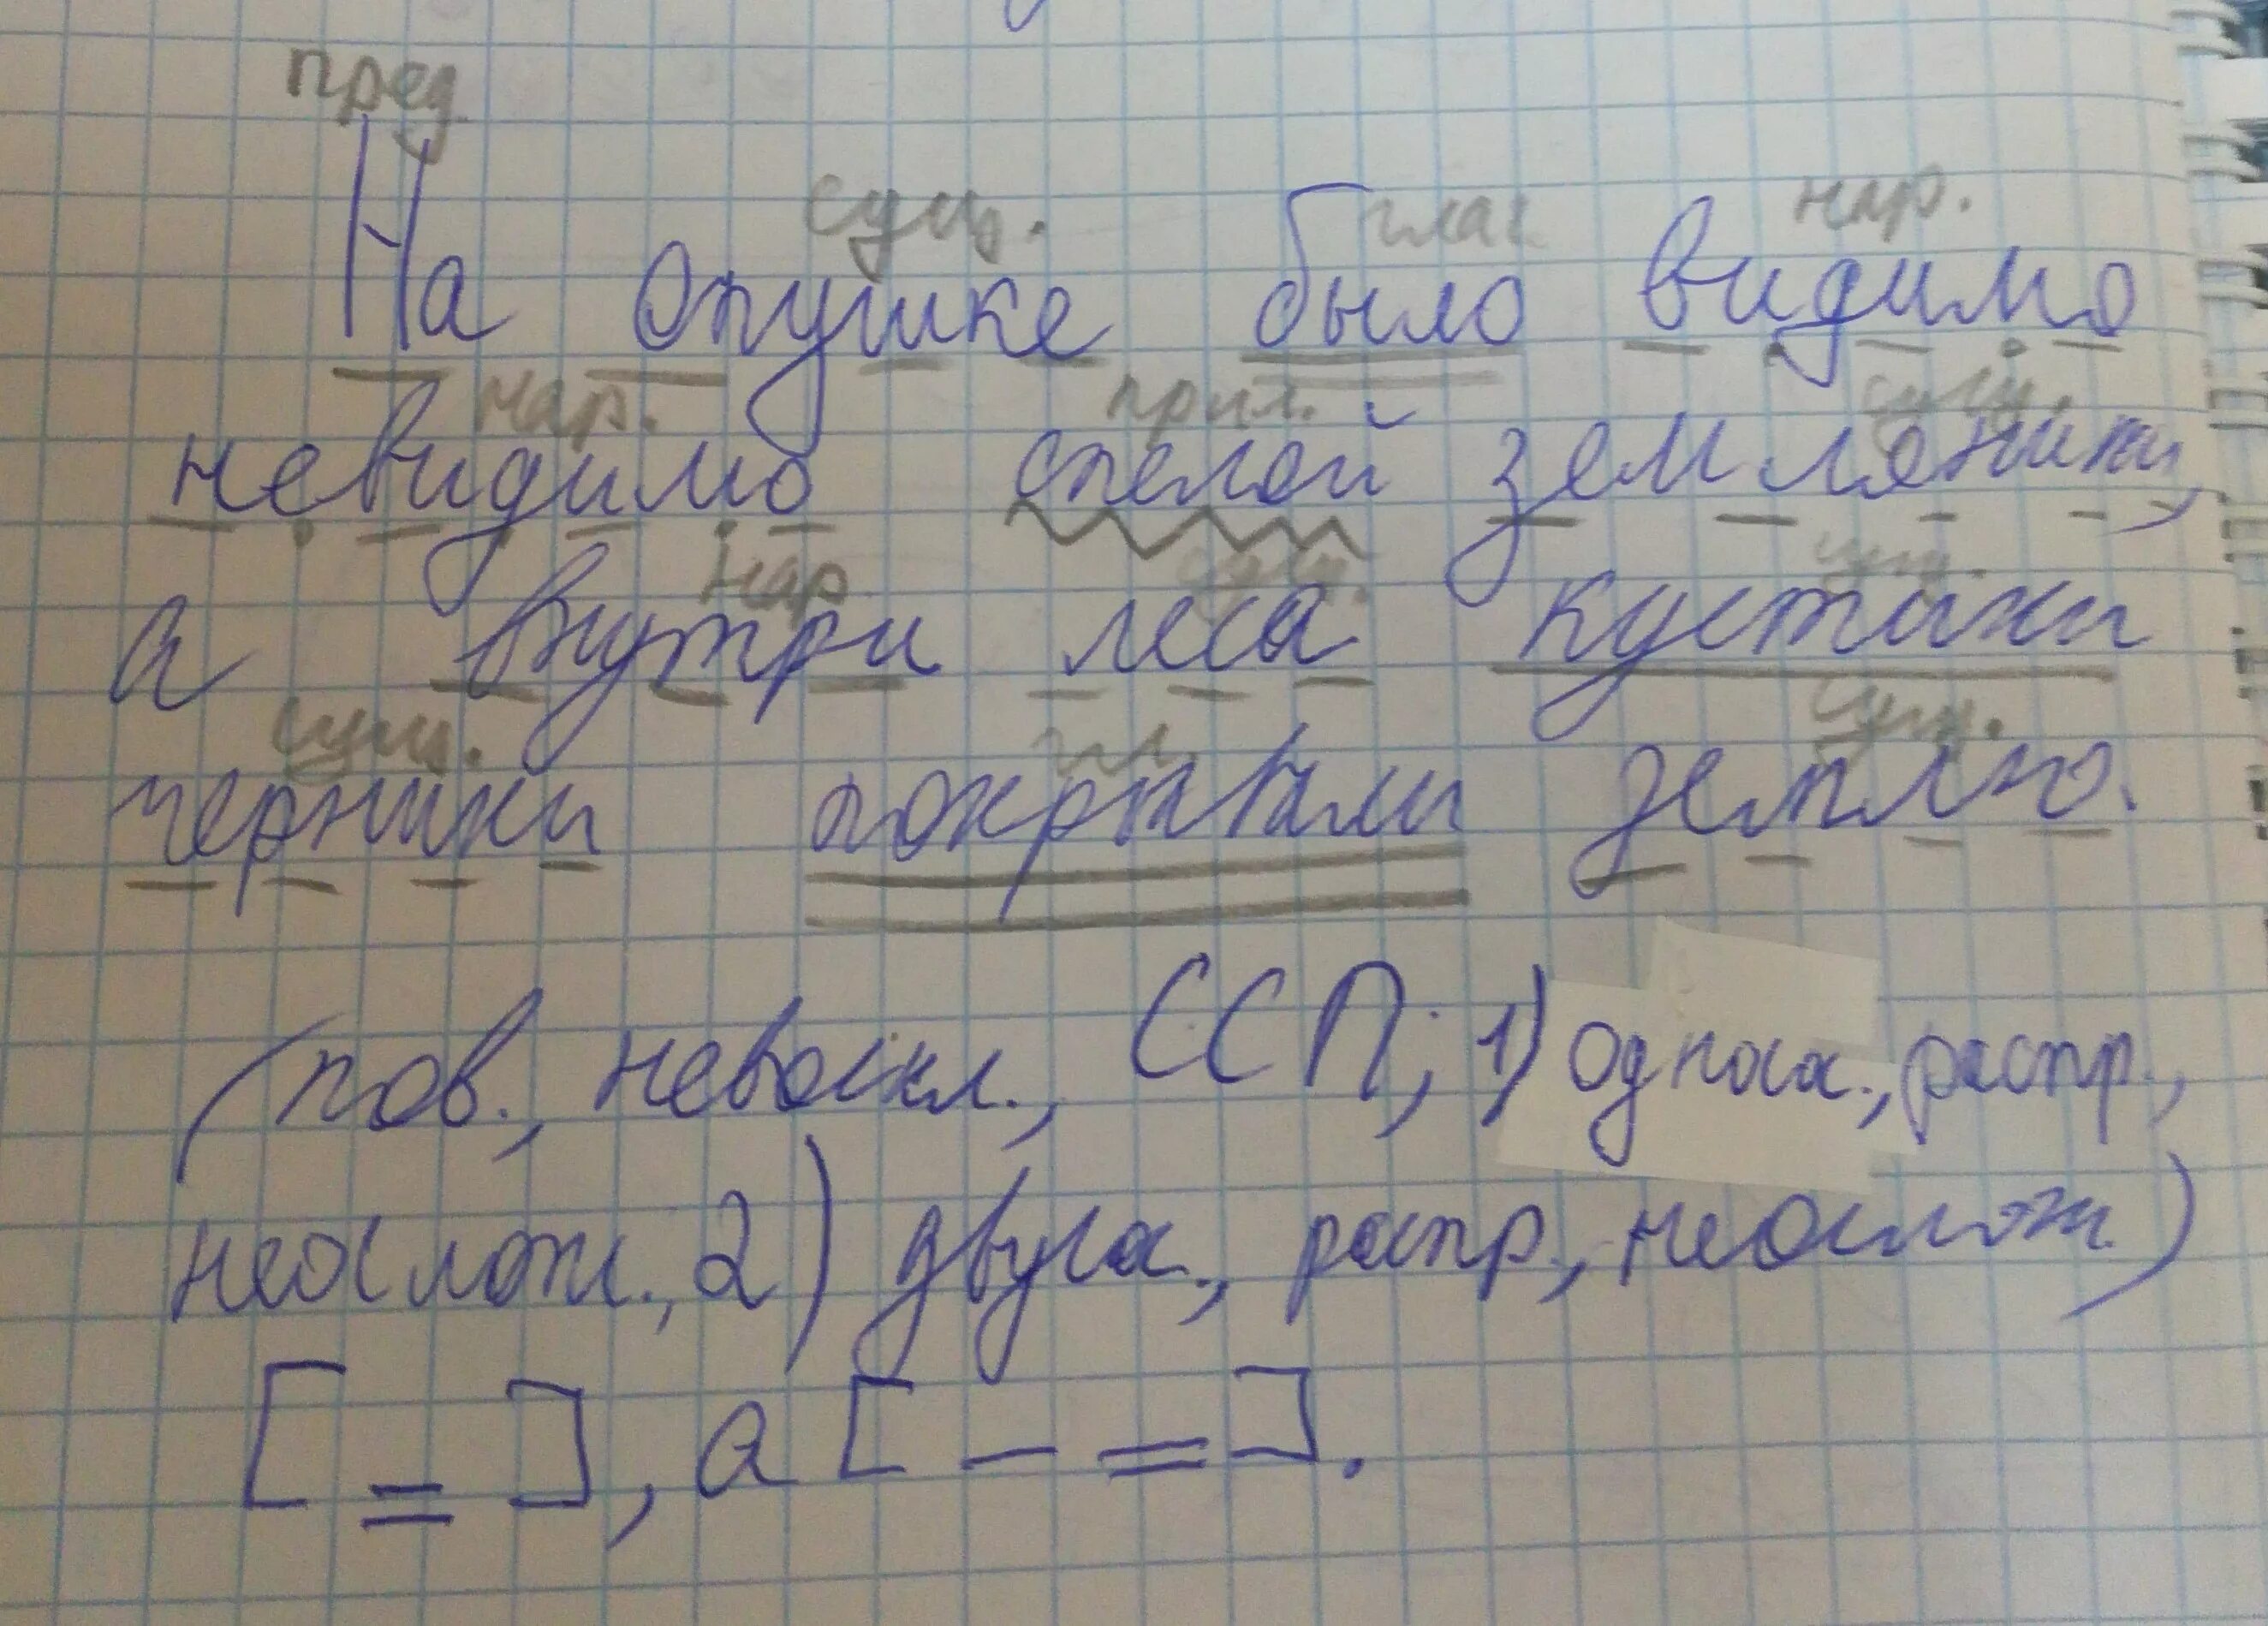 пред.
сущ. глаг. нар.
На опушке было видимо
нар. прил. сущ.
невидимо спелой земляники,
нар сущ. сущ.
а внутри леса кустики
сущ. гл. сущ.
черники покрывали землю.
(пов., невоскл., ССП; 1) односл., распр.,
неослож., 2) двусл., распр., неослож.)
[ = ], а [ — = ].